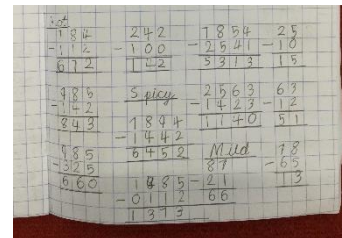 Hot
784
- 112
672
985
- 142
843
985
- 325
660
242
- 100
142
Spicy
7894
- 1442
6452
1485
- 0112
1373
7854
- 2541
5313
2563
- 1423
1140
Mild
87
- 21
66
25
- 10
15
63
- 12
51
78
- 65
13